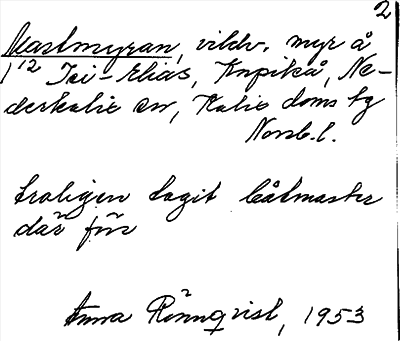 2
Mastmyran, vildv. myr å
1/12 Isi-Elias, Knpikå, Ne-
derkalix sn, Kalix doms tg
Norrb. l.
troligen tagit båtmaster
där för
Anna Rönnqvist, 1953